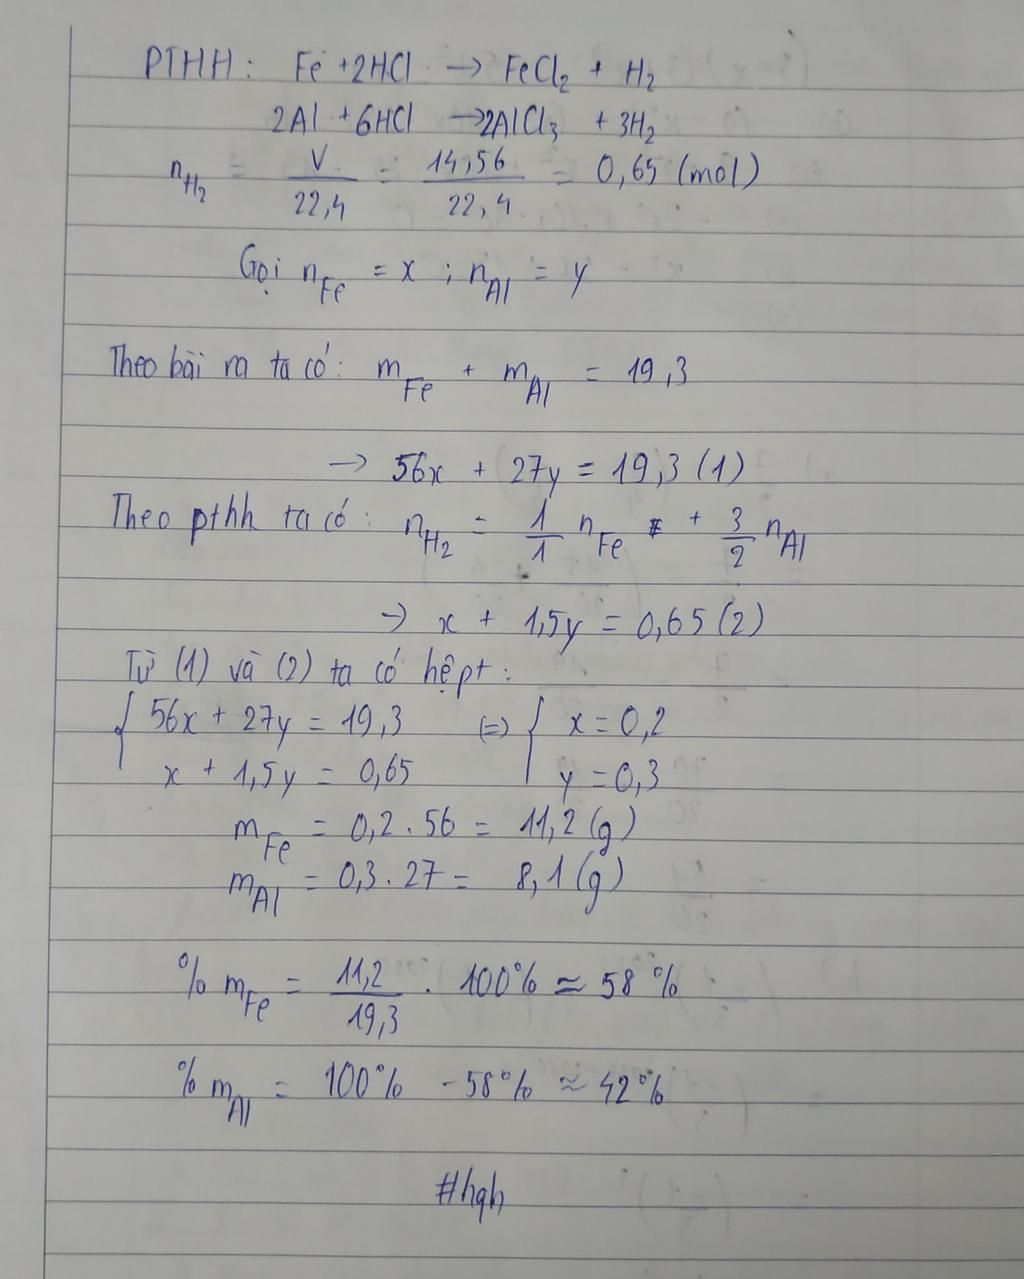 PTHH: Fe + 2HCl → FeCl₂ + H₂
2Al + 6HCl → 2AlCl₃ + 3H₂
n_H₂ = V/22,4 = 14,56/22,4 = 0,65 (mol)
Gọi n_Fe = x ; n_Al = y
Theo bài ra ta có: m_Fe + m_Al = 19,3
→ 56x + 27y = 19,3 (1)
Theo pthh ta có: n_H₂ = 1/1 n_Fe + 3/2 n_Al
→ x + 1,5y = 0,65 (2)
Từ (1) và (2) ta có hệ pt:
{ 56x + 27y = 19,3 (=) { x = 0,2
x + 1,5y = 0,65 y = 0,3
m_Fe = 0,2 . 56 = 11,2 (g)
m_Al = 0,3 . 27 = 8,1 (g)
% m_Fe = 11,2/19,3 . 100% ≈ 58%
% m_Al = 100% - 58% ≈ 42%
#hgh